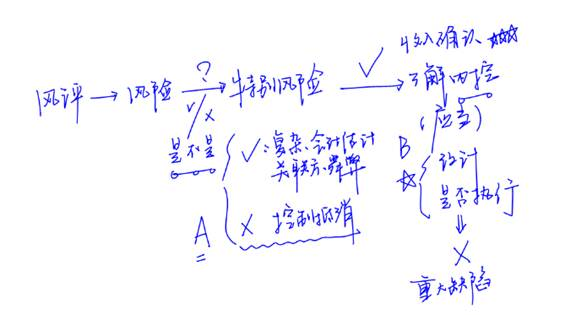 收入确认 ☆☆☆
风评 → 风险 → 特别风险 → 了解内控
?
✓/×
✓
(应当)
是不是
✓:复杂、会计估计
关联方、舞弊
× 控制抵消
A
B
☆
设计
是否执行
⇓
×
重大缺陷